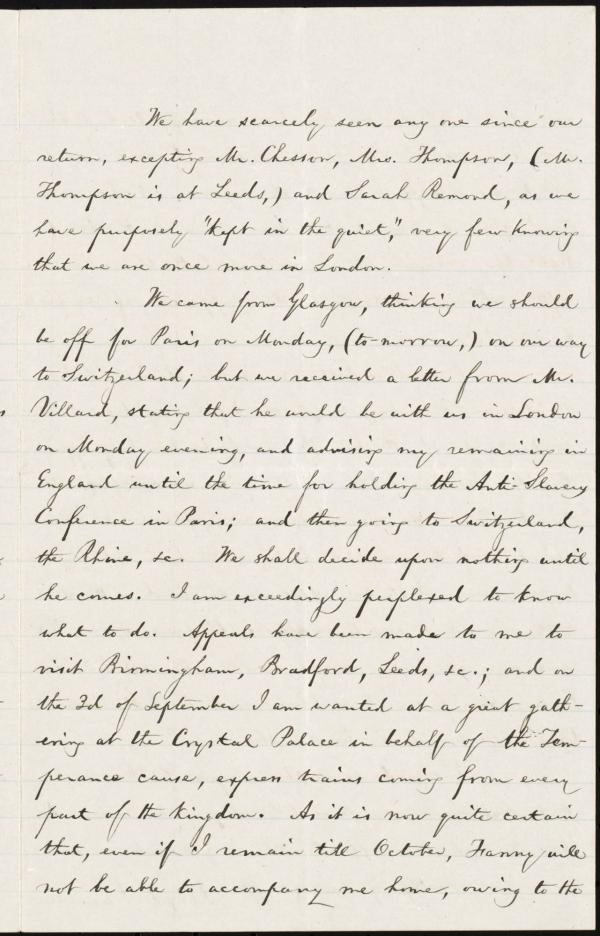 We have scarcely seen any one since our
return, excepting Mr. Chesson, Mrs. Thompson, (Mr.
Thompson is at Leeds,) and Sarah Remond, as we
have purposely "kept in the quiet," very few knowing
that we are once more in London.
We came from Glasgow, thinking we should
be off for Paris on Monday, (to-morrow,) on our way
to Switzerland; but we received a letter from Mr.
Villard, stating that he would be with us in London
on Monday evening, and advising my remaining in
England until the time for holding the Anti-Slavery
Conference in Paris; and then going to Switzerland,
the Rhine, &c. We shall decide upon nothing until
he comes. I am exceedingly perplexed to know
what to do. Appeals have been made to me to
visit Birmingham, Bradford, Leeds, &c.; and on
the 3d of September I am wanted at a great gath-
ering at the Crystal Palace in behalf of the Tem-
perance cause, express trains coming from every
part of the kingdom. As it is now quite certain
that, even if I remain till October, Fanny will
not be able to accompany me home, owing to the